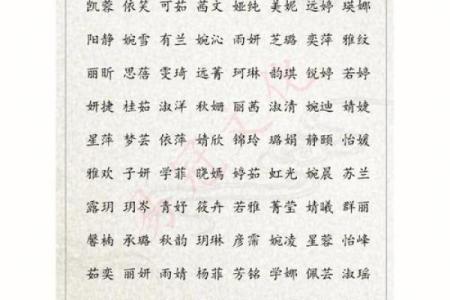 凯蓉 依笑 可茹 茜文 娅纯 美妮 远婷 瑛娜
阳静 婉雪 有兰 婉沁 雨妍 芝璐 奕萍 雅纹
丽昕 思蓓 雯琦 远菁 珂琳 韵琪 锐婷 若婷
妍捷 桂茹 淑洋 秋姗 丽茜 淑清 婉迪 婧婕
星萍 梦芸 依萍 婧欣 锦玲 璐娟 静颐 怡媛
雅欢 子妍 学菲 晓嫣 婷茹 虹光 婉晨 苏兰
露玥 玥岑 青妤 筱卉 若雅 菁莹 婧曦 群丽
馨楠 承璐 秋韵 玥琳 彦霈 婉凌 星蓉 怡峰
茹奕 丽妍 雨婧 杨菲 芳铭 学娜 佩芸 淑瑶